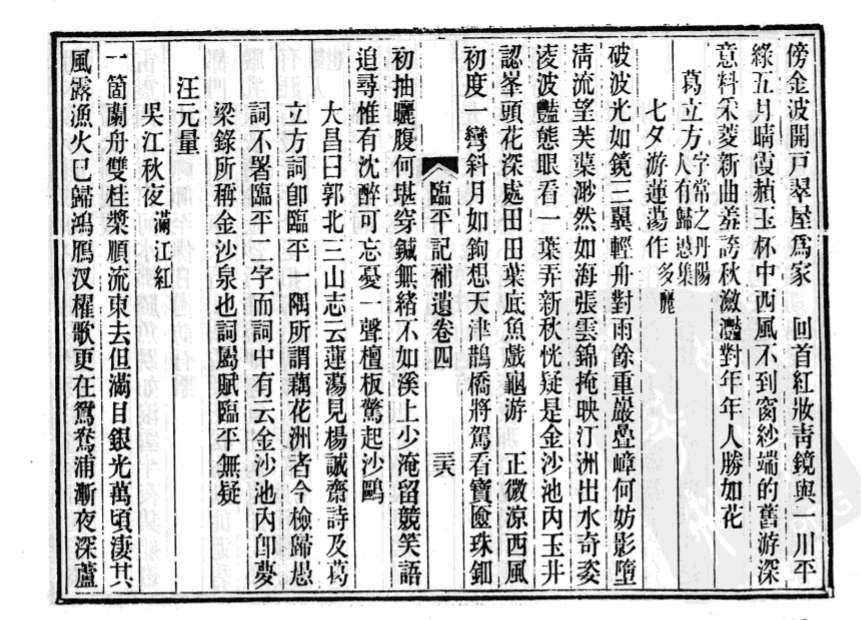 傍金波開戸翠屋爲家　回首紅妝靑鏡與一川平
綠五月晴霞赬玉杯中西風不到窗紗端的舊游深
意料釆菱新曲羞誇秋瀲灩對年年人勝如花
葛立方字常之丹陽人有歸愚集
七夕游蓮蕩作多麗
破波光如鏡三翼輕舟對雨餘重巖疊嶂何妨影墮
淸流望芙蕖渺然如海張雲錦掩映汀洲出水奇姿
淩波豔態眼看一葉弄新秋恍疑是金沙池內玉井
認峯頭花深處田田葉底魚戲龜游　正微涼西風
初度一彎斜月如鉤想天津鵲橋將駕看寶奩珠鈿
臨平記補遺卷四
三六
初抽曬腹何堪穿鍼無緒不如溪上少淹留競笑語
追尋惟有沈醉可忘憂一聲檀板驚起沙鷗
大昌曰郭北三山志云蓮蕩見楊誠齋詩及葛
立方詞卽臨平一隅所謂藕花洲者今檢歸愚
詞不署臨平二字而詞中有云金沙池內卽夢
梁錄所稱金沙泉也詞屬賦臨平無疑
汪元量
吳江秋夜滿江紅
一箇蘭舟雙桂槳順流東去但滿目銀光萬頃淒其
風露漁火已歸鴻鴈汊櫂歌更在鴛鴦浦漸夜深蘆